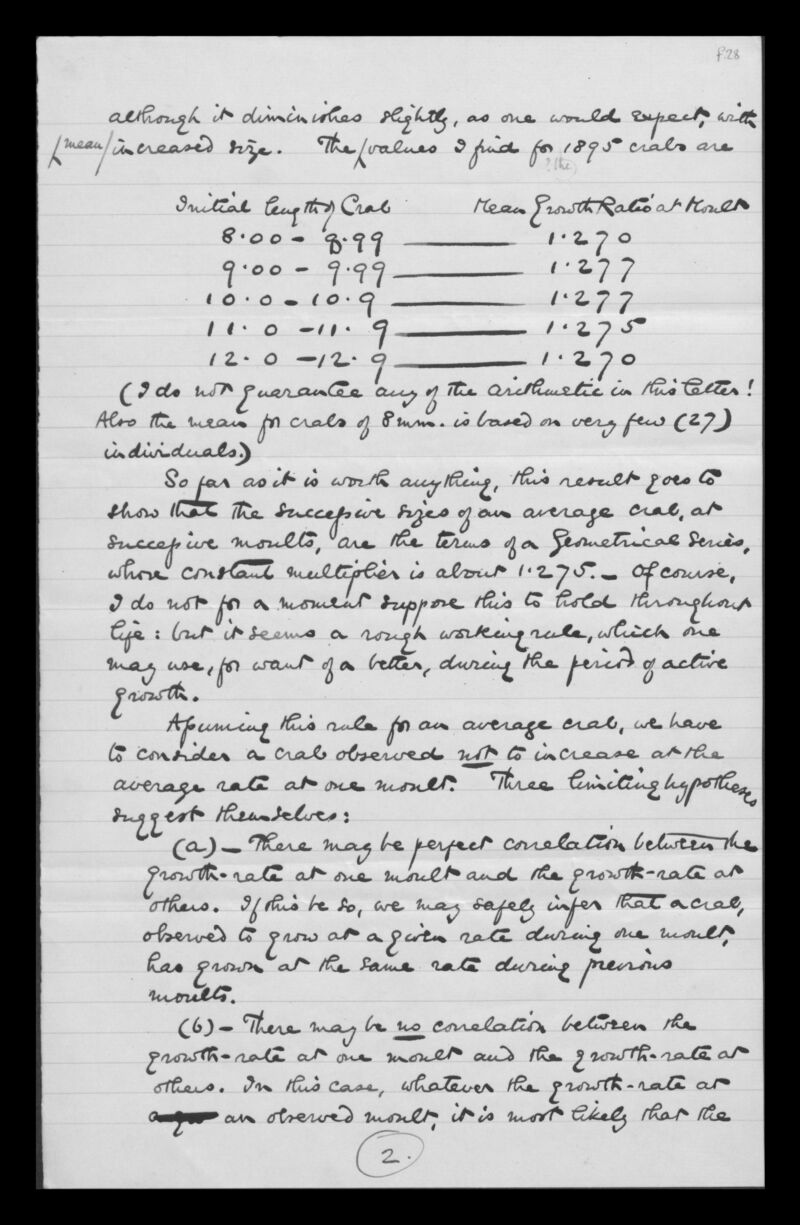 f.28
although it diminishes slightly, as one would expect, with
/mean/ increased size. The / values I find for 1895 crabs are
? the
Initial length of Crab Mean Growth Ratio at Moult
8.00 - 8.99 —— 1.270
9.00 - 9.99 —— 1.277
10.0 - 10.9 —— 1.277
11.0 - 11.9 —— 1.275
12.0 - 12.9 —— 1.270
(I do not guarantee any of the arithmetic in this letter!
Also the mean for crabs of 8mm. is based on very few (27)
individuals.)
So far as it is worth anything, this result goes to
show that the successive sizes of an average crab, at
successive moults, are the terms of a Geometrical Series,
whose constant multiplier is about 1.275. — Of course,
I do not for a moment suppose this to hold throughout
life: but it seems a rough working rule, which one
may use, for want of a better, during the period of active
growth.
Assuming this rule for an average crab, we have
to consider a crab observed not to increase at the
average rate at one moult. Three limiting hypotheses
suggest themselves:
(a) — There may be perfect correlation between the
growth-rate at one moult and the growth-rate at
others. If this be so, we may safely infer that a crab,
observed to grow at a given rate during one moult,
has grown at the same rate during previous
moults.
(b) — There may be no correlation between the
growth-rate at one moult and the growth-rate at
others. In this case, whatever the growth-rate at
an observed moult, it is most likely that the
2.